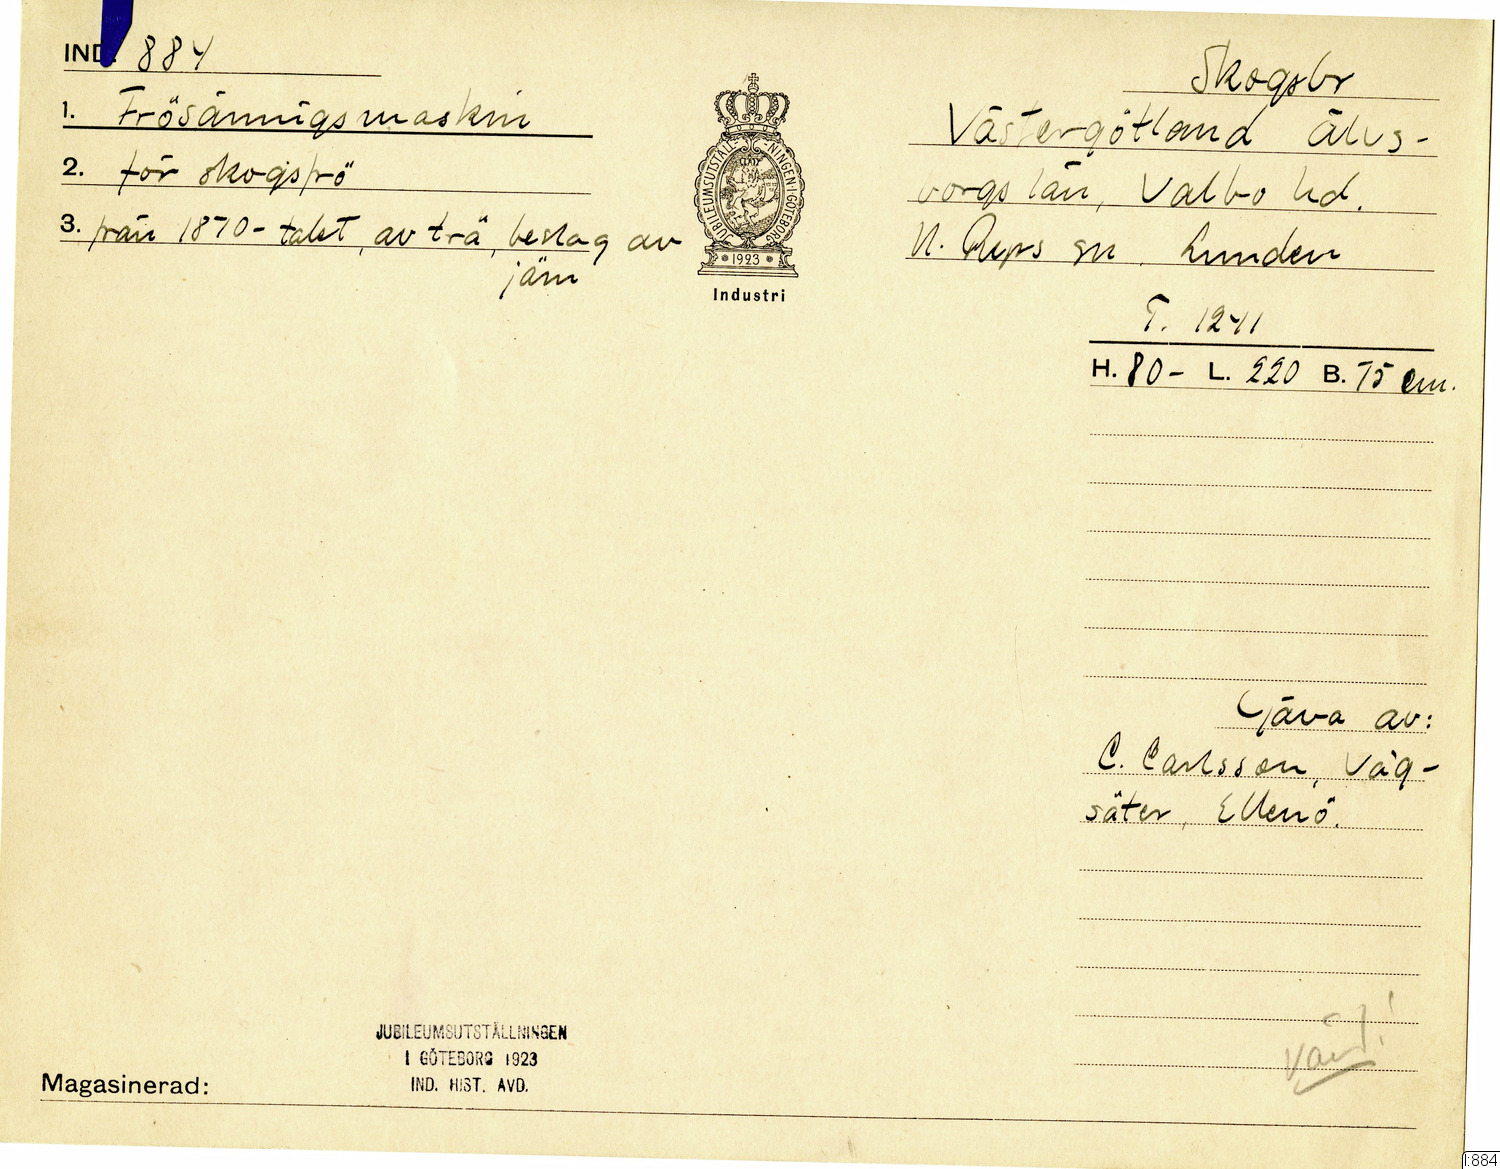 IND. 884
1. Frösånningsmaskin
2. för skogsfrö
3. från 1870-talet, av trä, beslag av
järn
JUBILEUMSUTSTÄLLNINGEN I GÖTEBORG
1923
Industri
Skogsbr
Västergötland Älvs-
borgs län, Valbo hd.
N. Ryrs sn. Lunden
T. 1241
H. 80- L. 220 B. 75 cm.
Gåva av:
C. Carlsson, Våg-
säter, Ellenö.
vänd!
JUBILEUMSUTSTÄLLNINGEN
I GÖTEBORG 1923
IND. HIST. AVD.
Magasinerad:
I:884